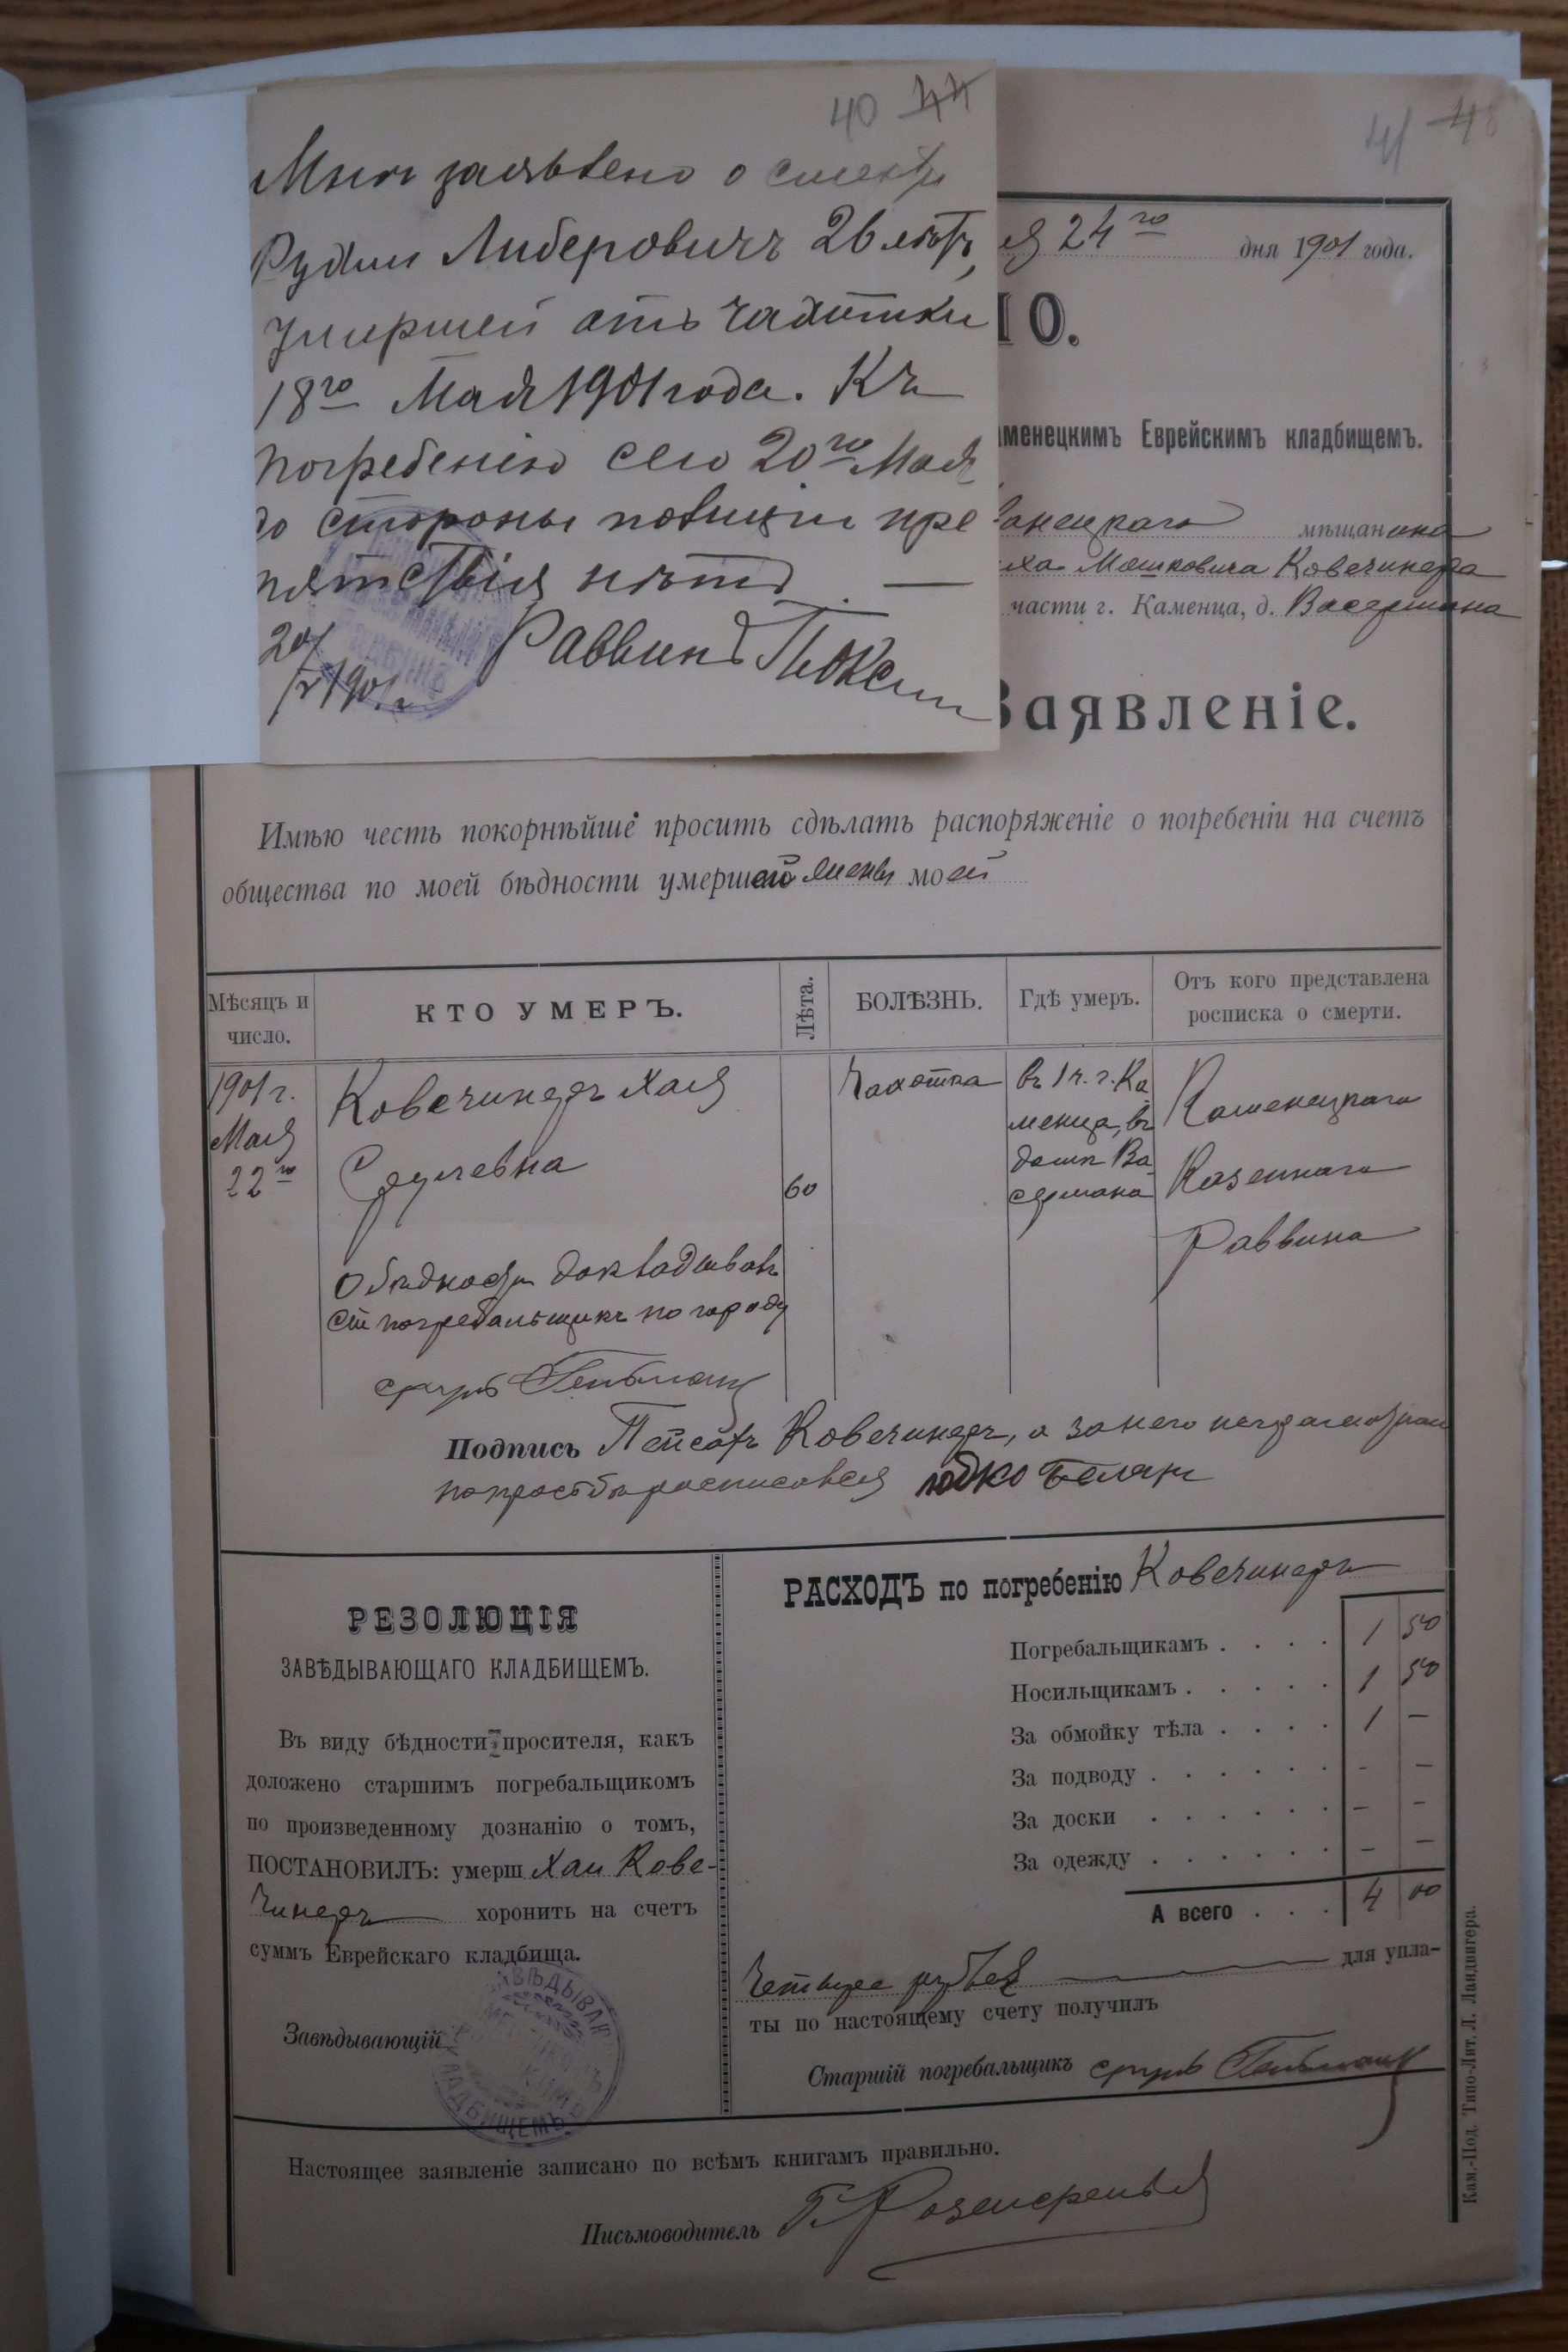 40 44
Мнѣ заявлено о смерти
Рухли Либеровичъ 26 лѣтъ,
умершей отъ чахотки
18го Мая 1901 года. Къ
погребенію сего 20го Мая
со стороны полиціи пре
пятствія нѣтъ. —
20/V 1901 г.
Раввинъ
41 48
ля 24го дня 1901 года.
Ю.
аменецкимъ Еврейскимъ кладбищемъ.
анецкаго мѣщанина
ха Мошковича Ковечинера
части г. Каменца, д. Васермана
Заявленіе.
Имѣю честь покорнѣйше просить сдѣлать распоряженіе о погребеніи на счетъ
общества по моей бѣдности умершей жены моей
Мѣсяцъ и число.
КТО УМЕРЪ.
Лѣта.
БОЛѢЗНЬ.
Гдѣ умеръ.
Отъ кого представлена росписка о смерти.
1901 г.
Мая
22го
Ковечинеръ Хая
Сруевна
60
Чахотка
въ 1 ч. г. Ка
менца, въ
домѣ Ва
сермана
Каменецкаго
Казеннаго
Раввина
О бѣдности докладывалъ
ст погребальщикъ по городу
сруль Гельман
Подпись Пейсахъ Ковечинеръ, а за него неграмотнаго
по просьбѣ росписался
РЕЗОЛЮЦІЯ
ЗАВѢДЫВАЮЩАГО КЛАДБИЩЕМЪ.
Въ виду бѣдности просителя, какъ
доложено старшимъ погребальщикомъ
по произведенному дознанію о томъ,
ПОСТАНОВИЛЪ: умерш Хаи Кове-
чинеръ хоронить на счетъ
суммъ Еврейскаго кладбища.
Завѣдывающій
РАСХОДЪ по погребенію Ковечинеръ
Погребальщикамъ . . . . 1 50
Носильщикамъ . . . . . 1 50
За обмойку тѣла . . . . 1 —
За подводу . . . . . . - —
За доски . . . . . . — —
За одежду . . . . . . — —
А всего . . . 4 00
Четыре рубля для упла-
ты по настоящему счету получилъ
Старшій погребальщикъ сруль Гельман
Настоящее заявленіе записано по всѣмъ книгамъ правильно.
Письмоводитель
Кам.-Под. Типо-Лит. Л. Ландвигера.